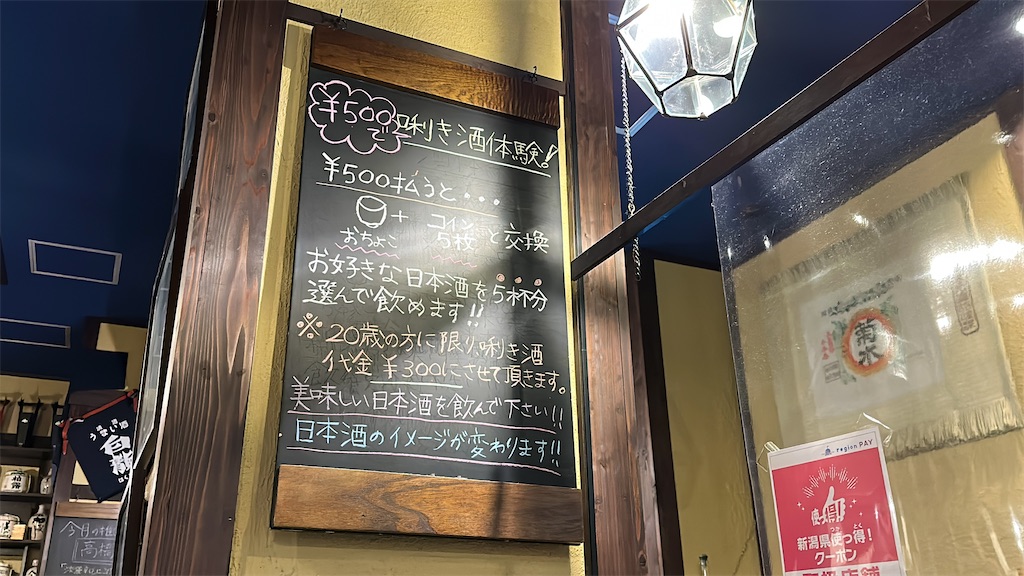 ¥500で
唎き酒体験!
¥500払うと・・・
おちょこ + コイン5枚 と交換
お好きな日本酒を5杯分
選んで飲めます!!
※20歳の方に限り、唎き酒
代金¥300にさせて頂きます。
美味しい日本酒を飲んで下さい!!
日本酒のイメージが変わります!!
菊水
region PAY
新潟県使っ得!
クーポン
取扱店舗
今月の